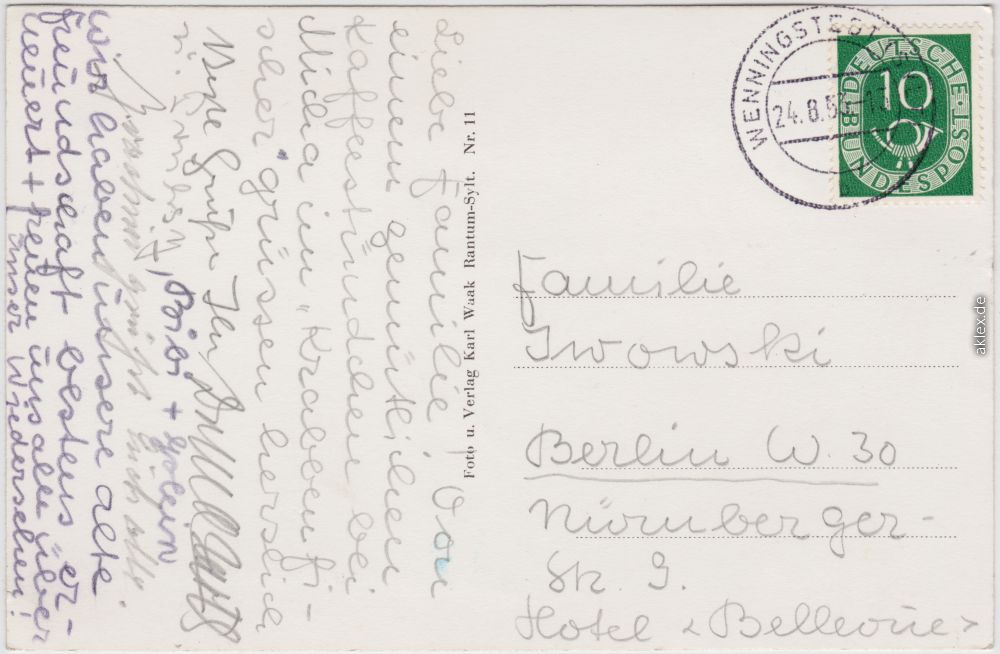 Liebe Familie! Von
einem gemütlichen
Kaffeestündchen bei
Micha im „Krabbenfi-
scher" grüssen herzlich
Beste Grüße Ihr
+ Bibi +
wir haben unsere alte
freundschaft bestens er-
neuert + freuen uns alle über
unser Wiedersehen!
Foto u. Verlag Karl Waak Rantum-Sylt. Nr. 11
WENNINGSTEDT
24.8.
DEUTSCHE BUNDESPOST
10
Familie
Iwowski
Berlin W. 30
Nürnberger-
Str. 9.
Hotel <Bellevue>
aklex.de